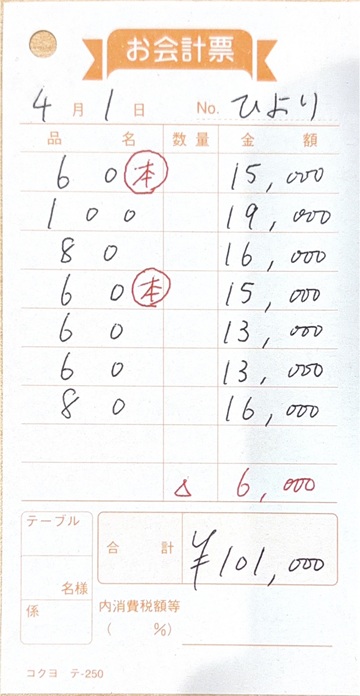 お会計票
4月1日 No. ひより
品名 数量 金額
60 本 15,000
100 19,000
80 16,000
60 本 15,000
60 13,000
60 13,000
80 16,000
△ 6,000
テーブル
名様
係
合計 ¥101,000
内消費税額等
( %)
コクヨ テ-250